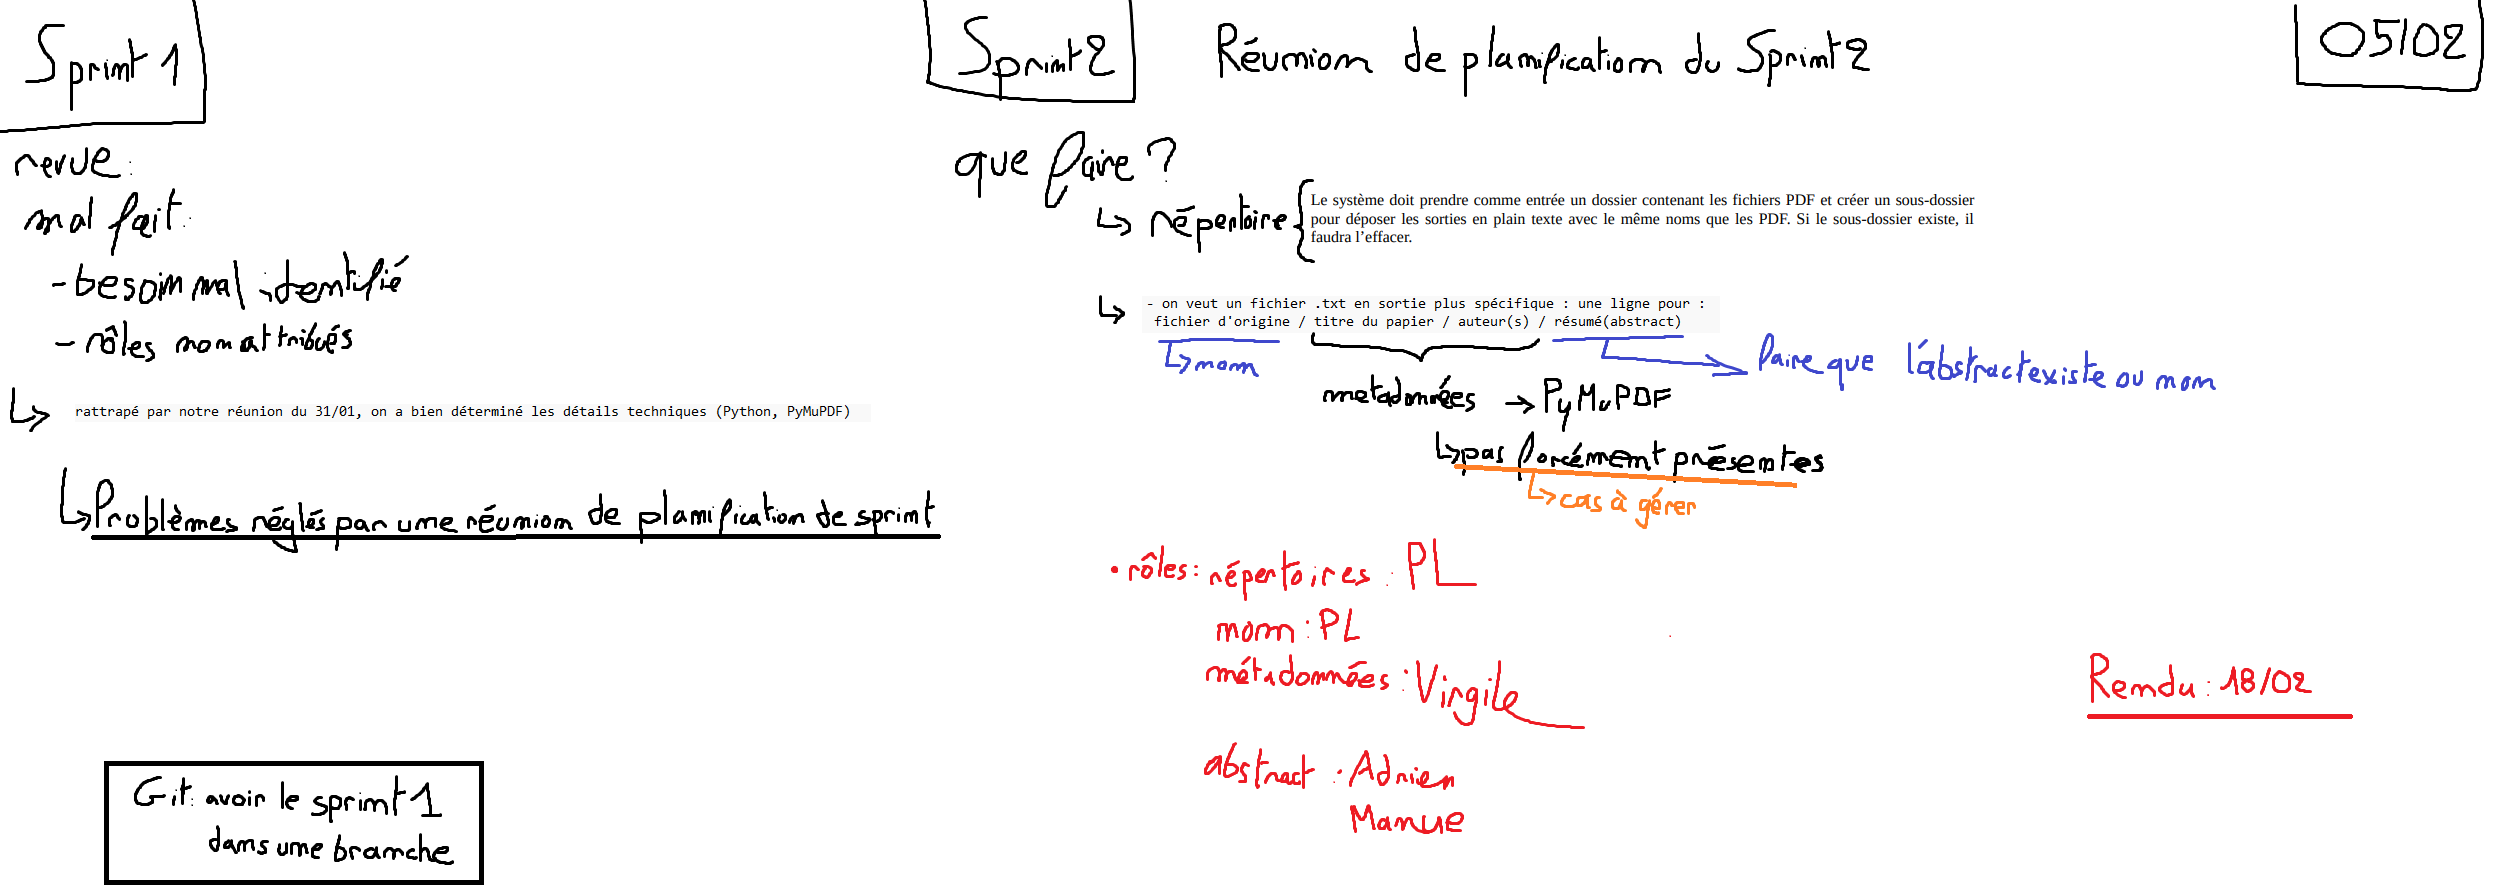 Sprint 1
revue :
mal fait :
- besoin mal identifié
- rôles non attribués
rattrapé par notre réunion du 31/01, on a bien déterminé les détails techniques (Python, PyMuPDF)
Problèmes réglés par une réunion de planification de sprint
Git : avoir le sprint 1
dans une branche
Sprint 2
Réunion de planification du Sprint 2
05/02
que faire ?
répertoire
Le système doit prendre comme entrée un dossier contenant les fichiers PDF et créer un sous-dossier
pour déposer les sorties en plain texte avec le même noms que les PDF. Si le sous-dossier existe, il
faudra l'effacer.
- on veut un fichier .txt en sortie plus spécifique : une ligne pour :
fichier d'origine / titre du papier / auteur(s) / résumé(abstract)
nom
faire que l'abstract existe ou non
metadonnées → PyMuPDF
pas forcément présentes
cas à gérer
• rôles : répertoires : PL
nom : PL
métadonnées : Virgile
abstract : Adrien
Manue
Rendu : 18/02